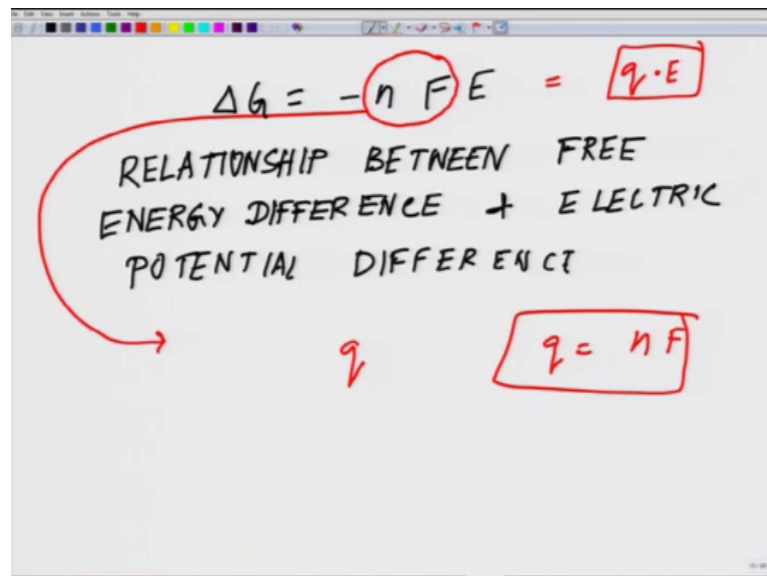 ΔG = - n F E = q·E
RELATIONSHIP BETWEEN FREE
ENERGY DIFFERENCE + ELECTRIC
POTENTIAL DIFFERENCE
q q = n F